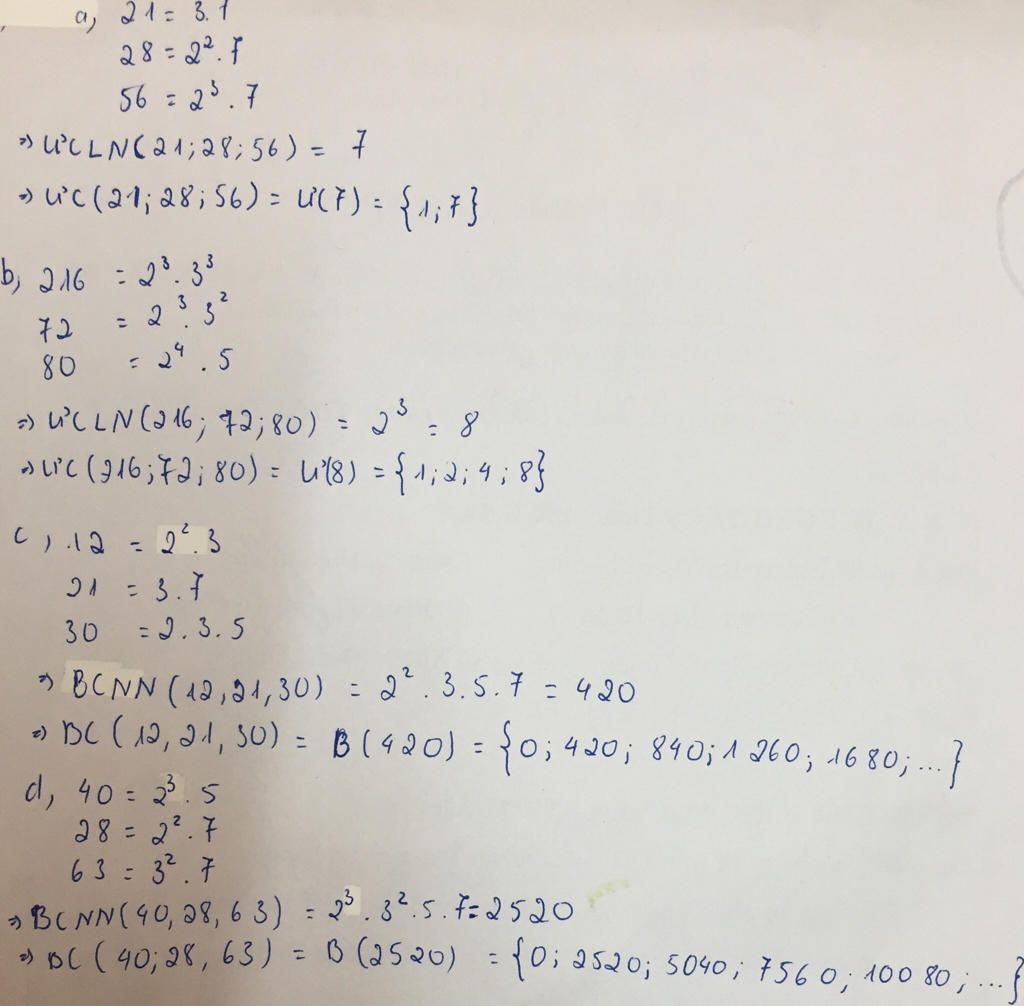 a, 21 = 3.7
28 = 2².7
56 = 2³.7
=> ƯCLN(21;28;56) = 7
=> ƯC(21;28;56) = Ư(7) = {1;7}
b, 216 = 2³.3³
72 = 2³.3²
80 = 2⁴.5
=> ƯCLN(216;72;80) = 2³ = 8
=> ƯC(216;72;80) = Ư(8) = {1;2;4;8}
c, 12 = 2².3
21 = 3.7
30 = 2.3.5
=> BCNN(12,21,30) = 2².3.5.7 = 420
=> BC(12,21,30) = B(420) = {0; 420; 840; 1260; 1680; ...}
d, 40 = 2³.5
28 = 2².7
63 = 3².7
=> BCNN(40,28,63) = 2³.3².5.7=2520
=> BC(40;28,63) = B(2520) = {0; 2520; 5040; 7560; 10080; ...}